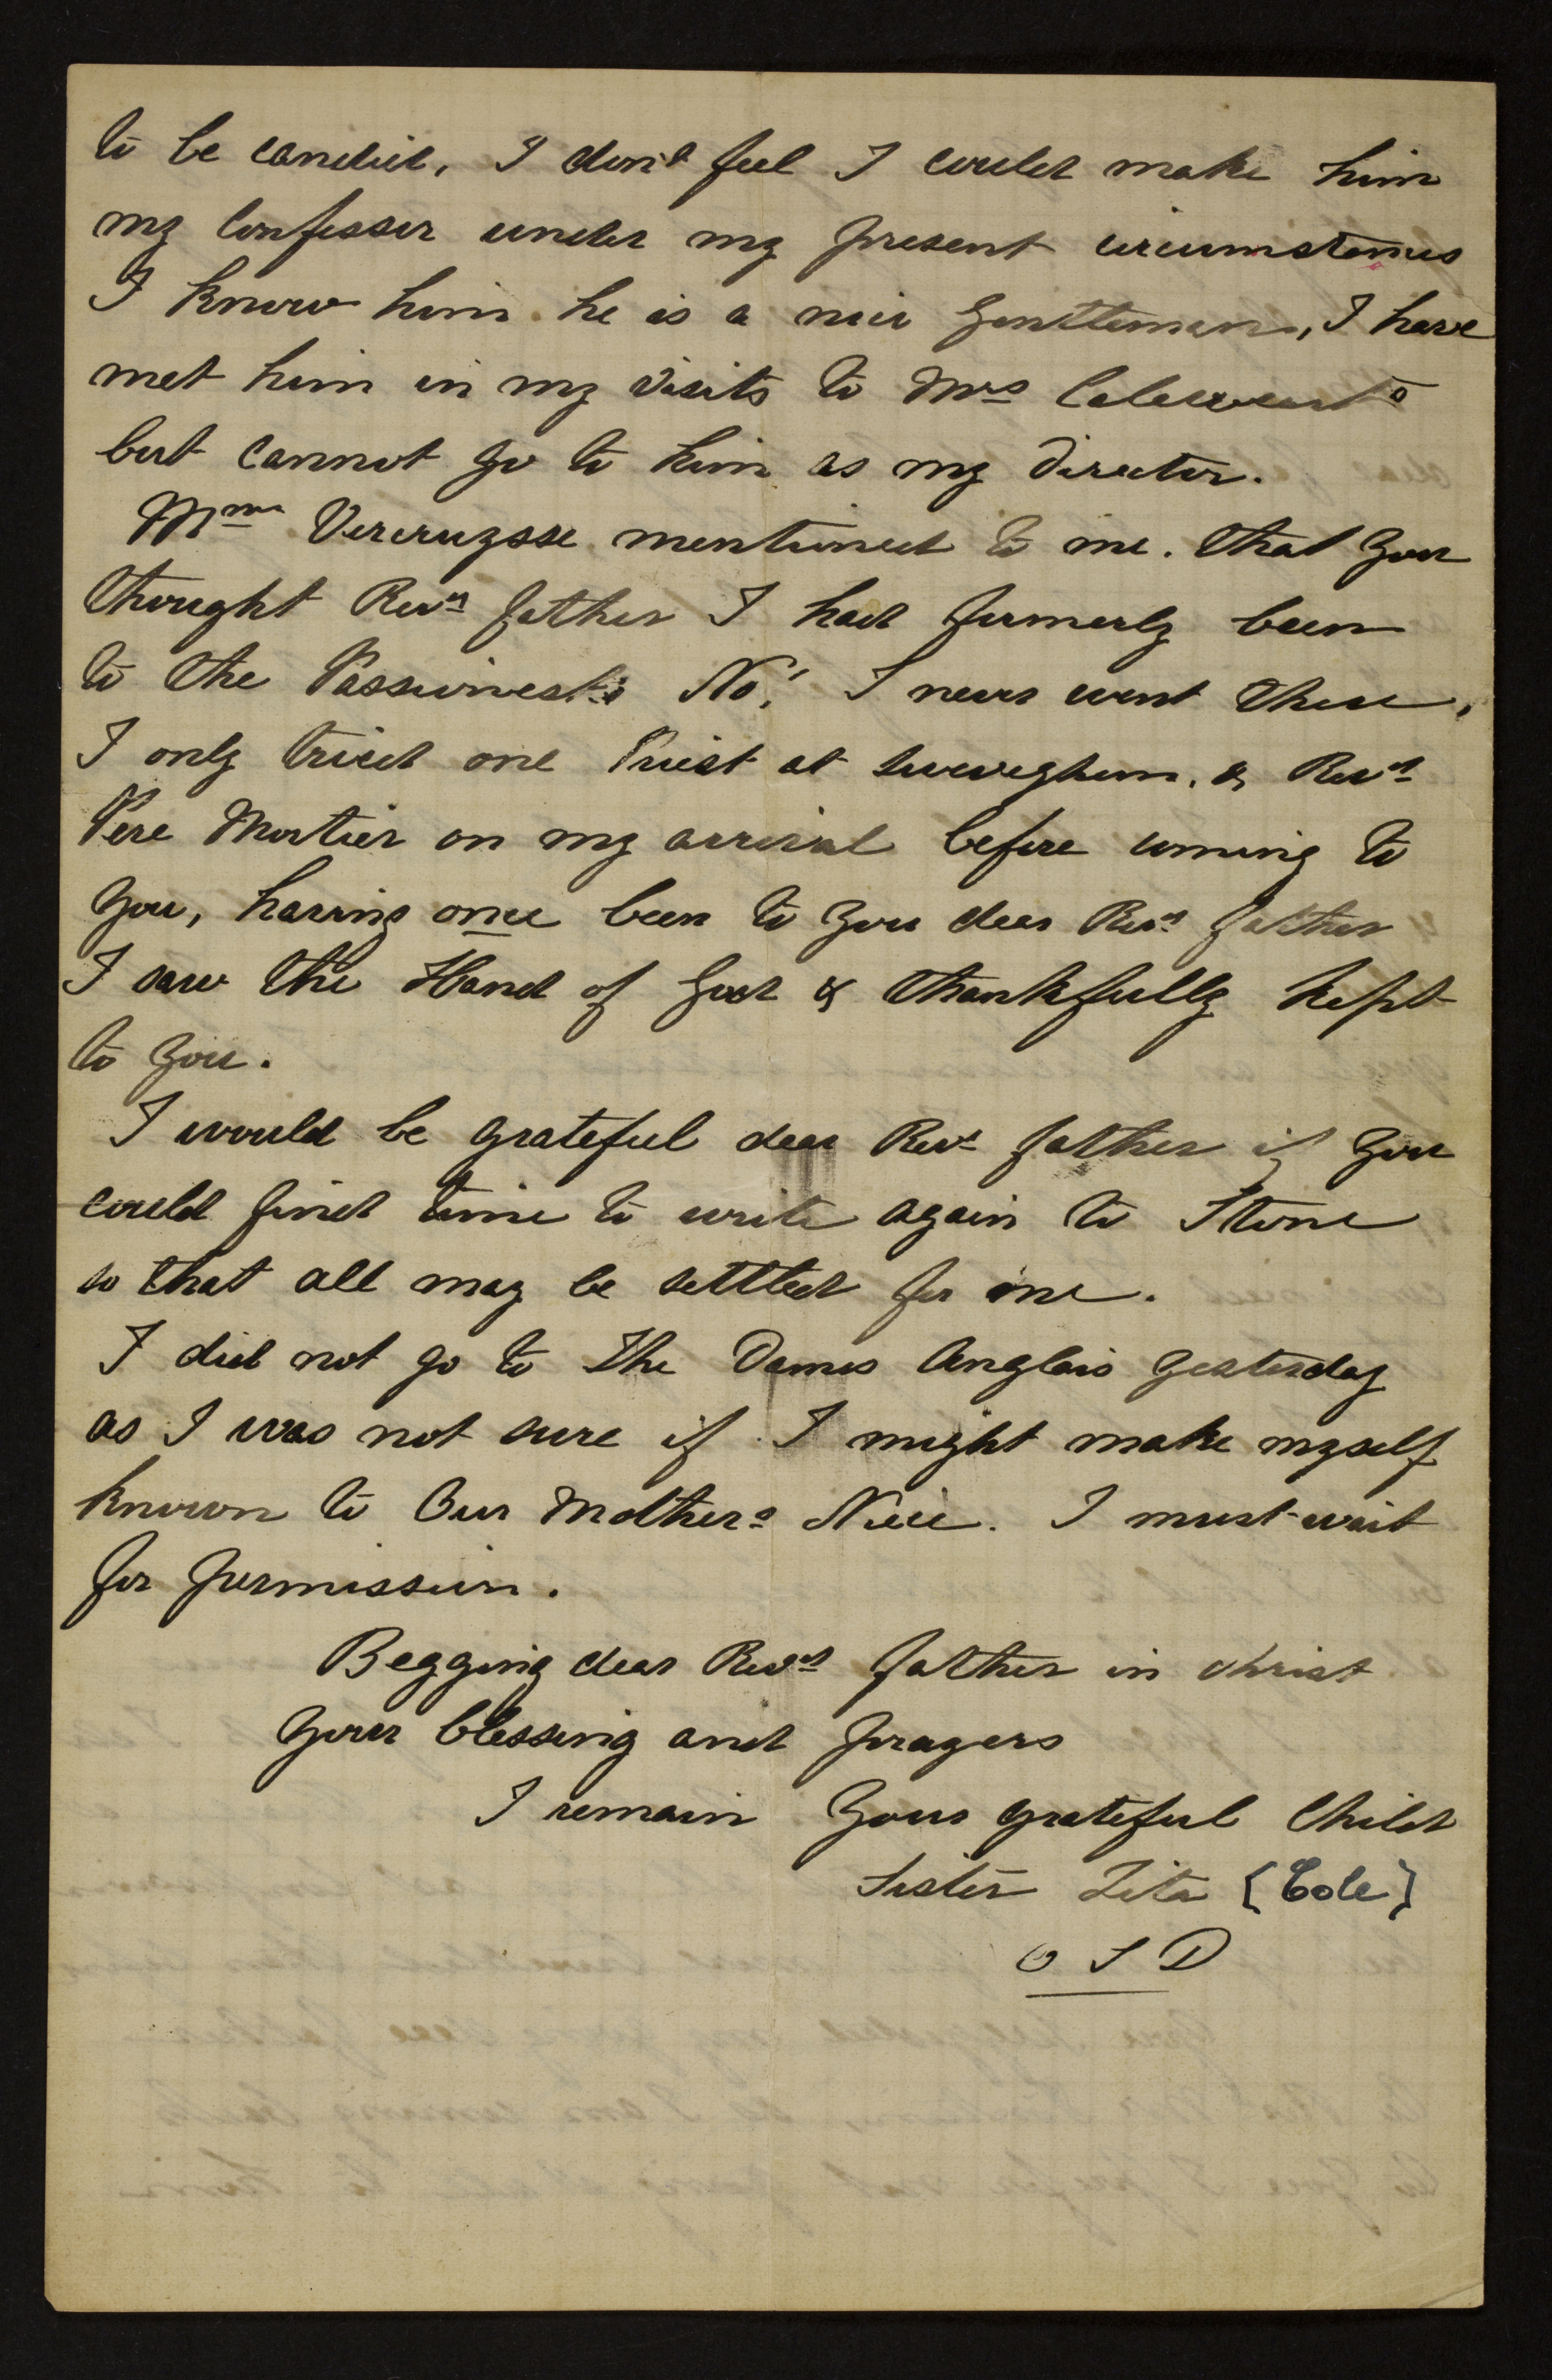 to be candid, I don't feel I could make him
my Confessor under my present circumstances
I know him he is a nice gentleman, I have
met him in my visits to Mrs
but cannot go to him as my director.
Mme Vercruysse mentioned to me. that you
thought Revd father I had formerly been
to the Passionests No! I never went there,
I only tried one Priest at Sweveghem, & Revd
Pere Mortier on my arrival before coming to
you, having once been to you dear Revd father
I saw the Hand of God & thankfully kept
to you.
I would be grateful dear Revd father if you
could find time to write again to Stone
so that all may be settled for me.
I did not go to The Dames Anglais yesterday
as I was not sure if I might make myself
known to Our Mothers Niece. I must wait
for permission.
Begging dear Revd father in christ
your blessing and prayers
I remain Your grateful Child
Sister Zita [Cole]
O S D